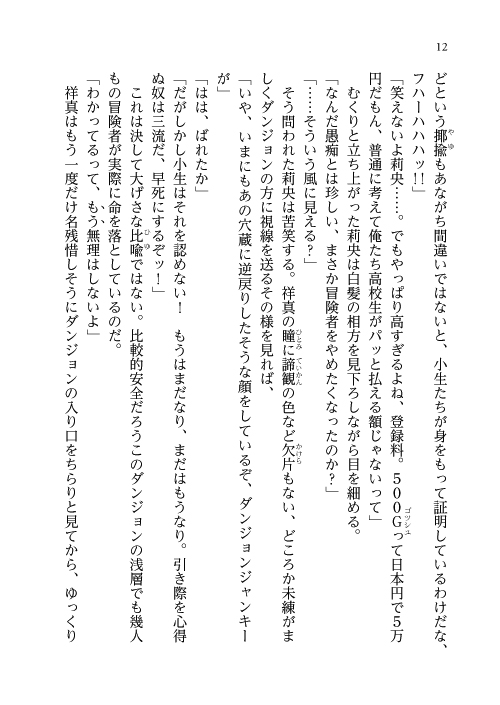 12
どという揶揄もあながち間違いではないと、小生たちが身をもって証明しているわけだな、
フハーハハハッ!!」
「笑えないよ莉央……。でもやっぱり高すぎるよね、登録料。500Gって日本円で5万
円だもん、普通に考えて俺たち高校生がパッと払える額じゃないって」
むくりと立ち上がった莉央は白髪の相方を見下ろしながら目を細める。
「なんだ愚痴とは珍しい、まさか冒険者をやめたくなったのか?」
「……そういう風に見える?」
そう問われた莉央は苦笑する。祥真の瞳に諦観の色など欠片もない、どころか未練がま
しくダンジョンの方に視線を送るその様を見れば、
「いや、いまにもあの穴蔵に逆戻りしたそうな顔をしているぞ、ダンジョンジャンキー
が」
「はは、ばれたか」
「だがしかし小生はそれを認めない! もうはまだなり、まだはもうなり。引き際を心得
ぬ奴は三流だ、早死にするぞッ!」
これは決して大げさな比喩ではない。比較的安全だろうこのダンジョンの浅層でも幾人
もの冒険者が実際に命を落としているのだ。
「わかってるって、もう無理はしないよ」
祥真はもう一度だけ名残惜しそうにダンジョンの入り口をちらりと見てから、ゆっくり